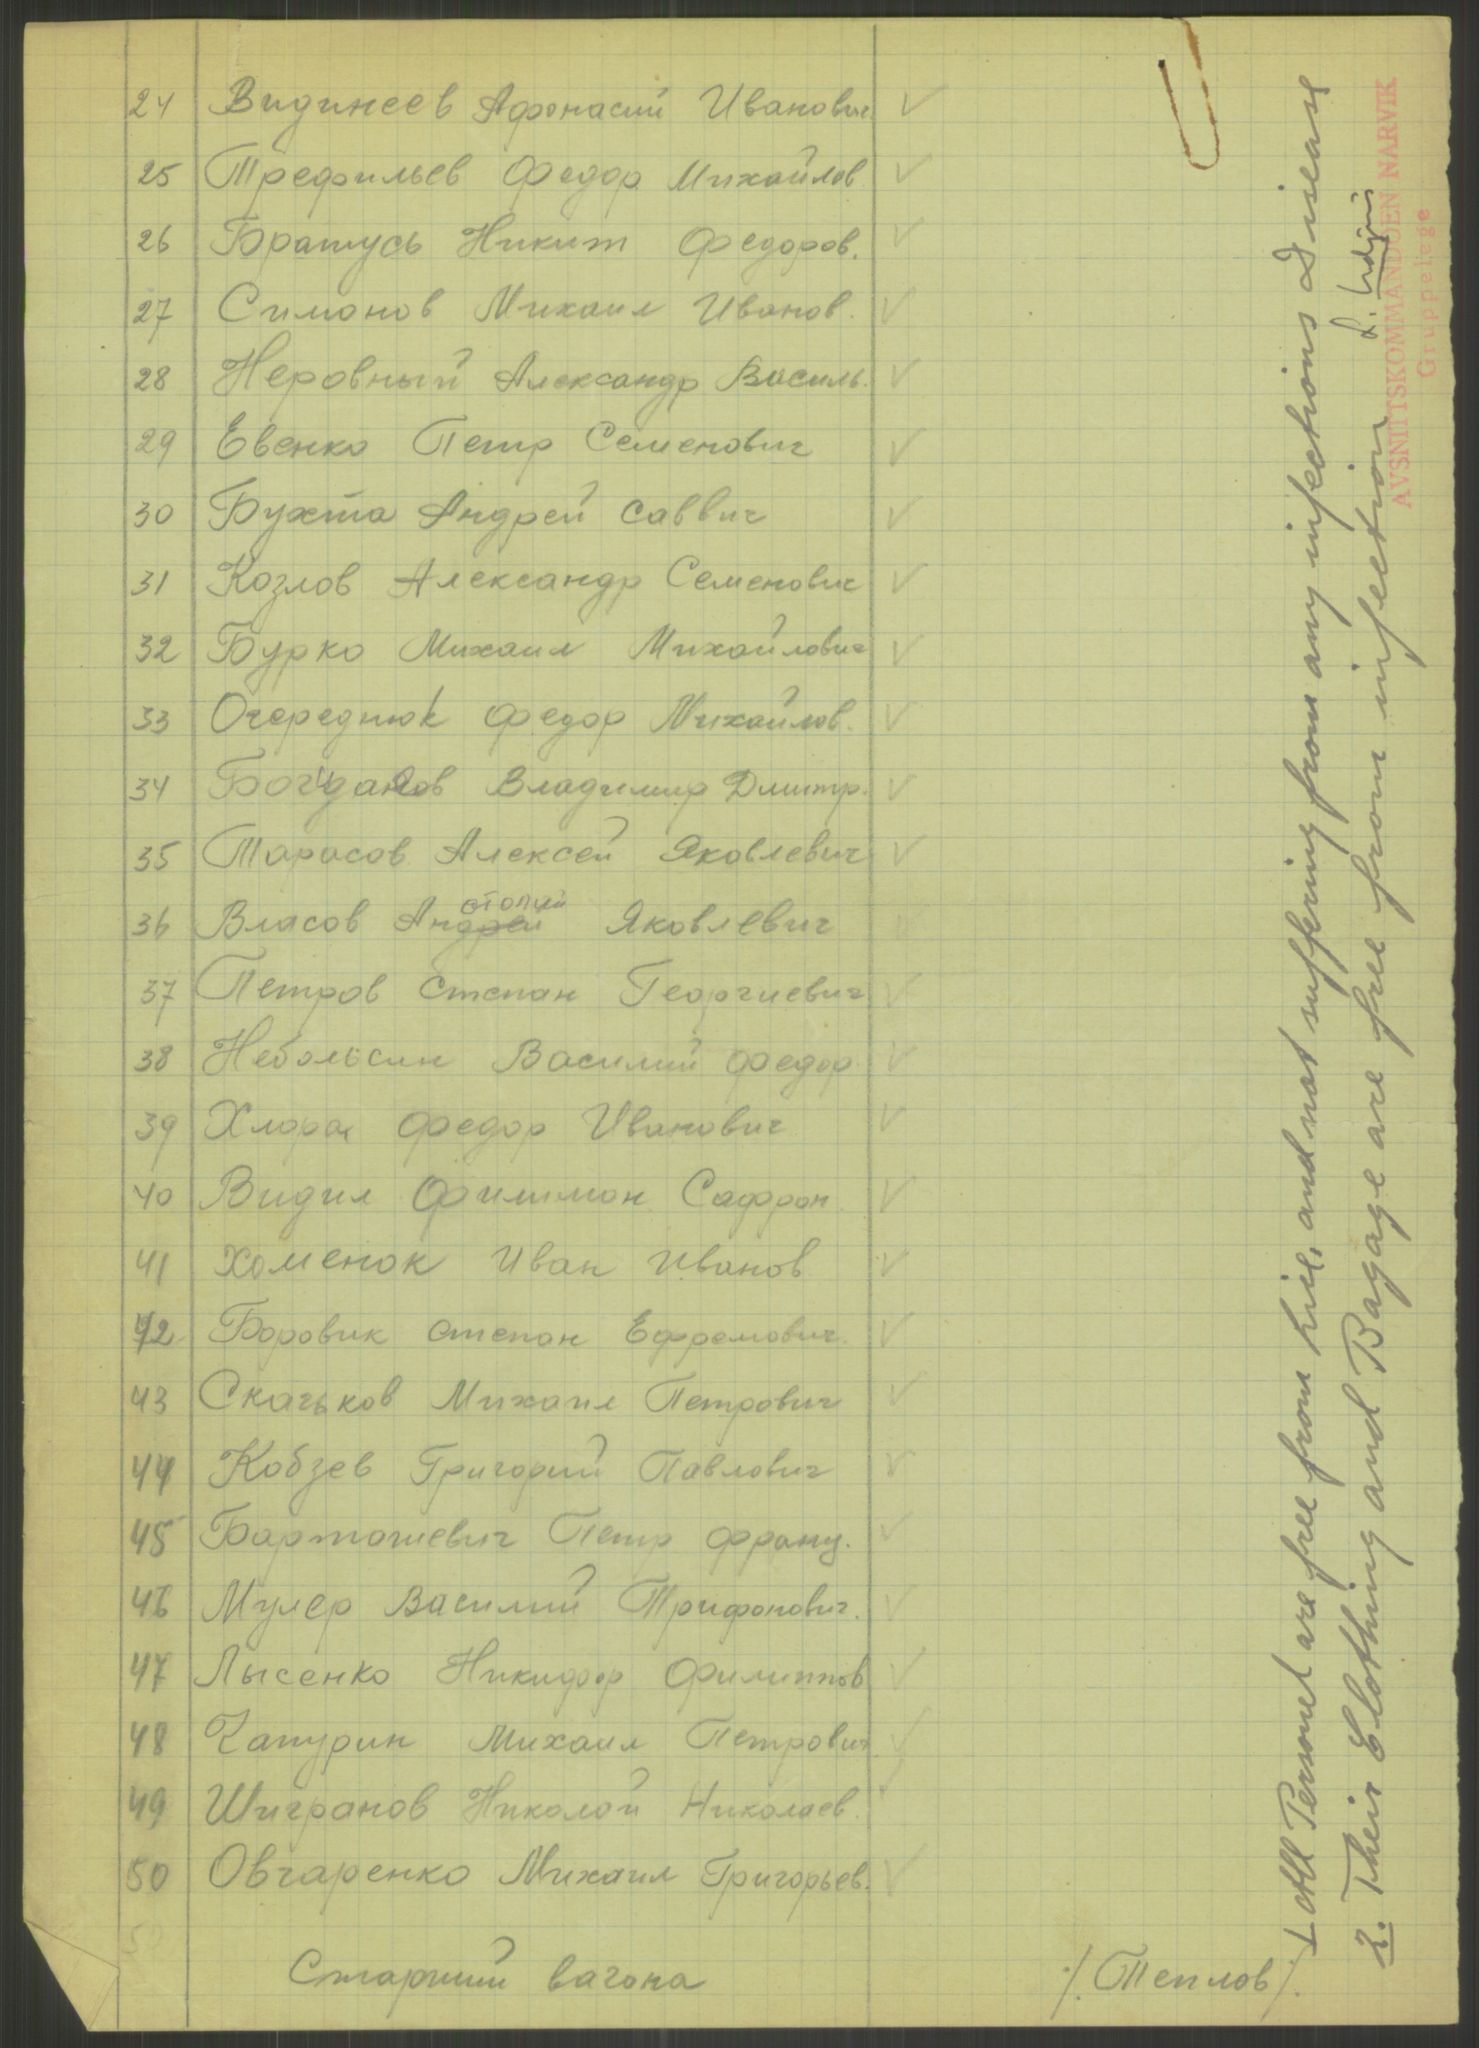 24 Видинеев Афонасий Иванович ✓
25 Трефильев Федор Михайлов ✓
26 Братусь Никит Федоров. ✓
27 Симонов Михаил Иванов. ✓
28 Неровный Александр Василь. ✓
29 Евенко Петр Семенович ✓
30 Бухта Андрей Саввич ✓
31 Козлов Александр Семенович ✓
32 Бурко Михаил Михайлович ✓
33 Очереднюк Федор Михайлов. ✓
34 Владимир Дмитр. ✓
35 Тарасов Алексей Яковлевич ✓
36 Власов Анатолий Яковлевич
37 Петров Степан Георгиевич ✓
38 Небольсин Василий Федор. ✓
39 Федор Иванович ✓
40 Видил Филимон Сафрон ✓
41 Хоменок Иван Иванов ✓
42 Боровик Степан Ефремович. ✓
43 Скачьков Михаил Петрович ✓
44 Кобзев Григорий Павлович ✓
45 Бартошевич Петр Франц. ✓
46 Мулер Василий Трифонович. ✓
47 Лысенко Никифор Филиппов ✓
48 Чапурин Михаил Петрович ✓
49 Шигранов Николай Николаев. ✓
50 Овчаренко Михаил Григорьев. ✓
Старший вагона /. Теплов /.
1 All Personel are free from and not suffering from any infections Disease
2. Their Clothing and Bagage are free from infection
AVSNITTSKOMMANDOEN NARVIK
Gruppelege